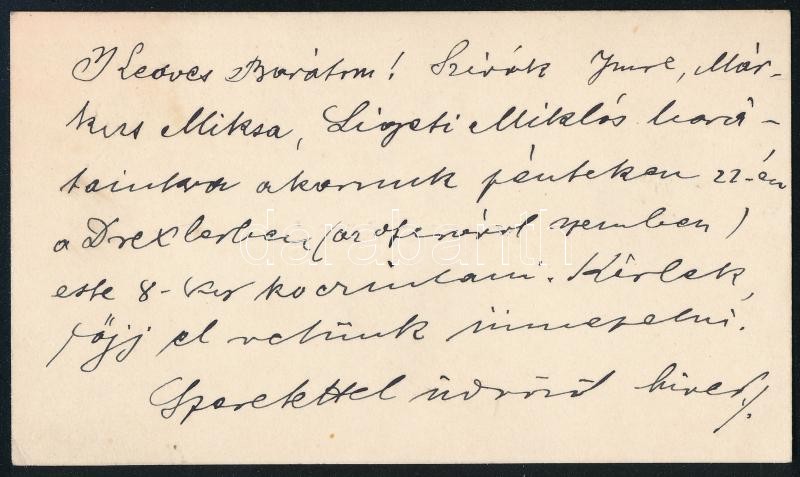 Kedves Barátom! Szirák Imre, Már-
kus Miksa, Ligeti Miklós bará-
tainkra akarunk pénteken 22-én
a Drexlerben (az operával szemben)
este 8-kor koczintani. Kérlek,
jőjj el velünk ünnepelni.
Szeretettel üdvözöl hived
darabanth